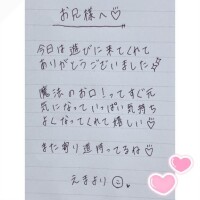 お兄様へ♡
今日は遊びに来てくれて
ありがとうございました
魔法のお口！ってすぐ元
気になっていっぱい気持ち
よくなってくれて嬉しい
また寄り道待ってるね
えきより